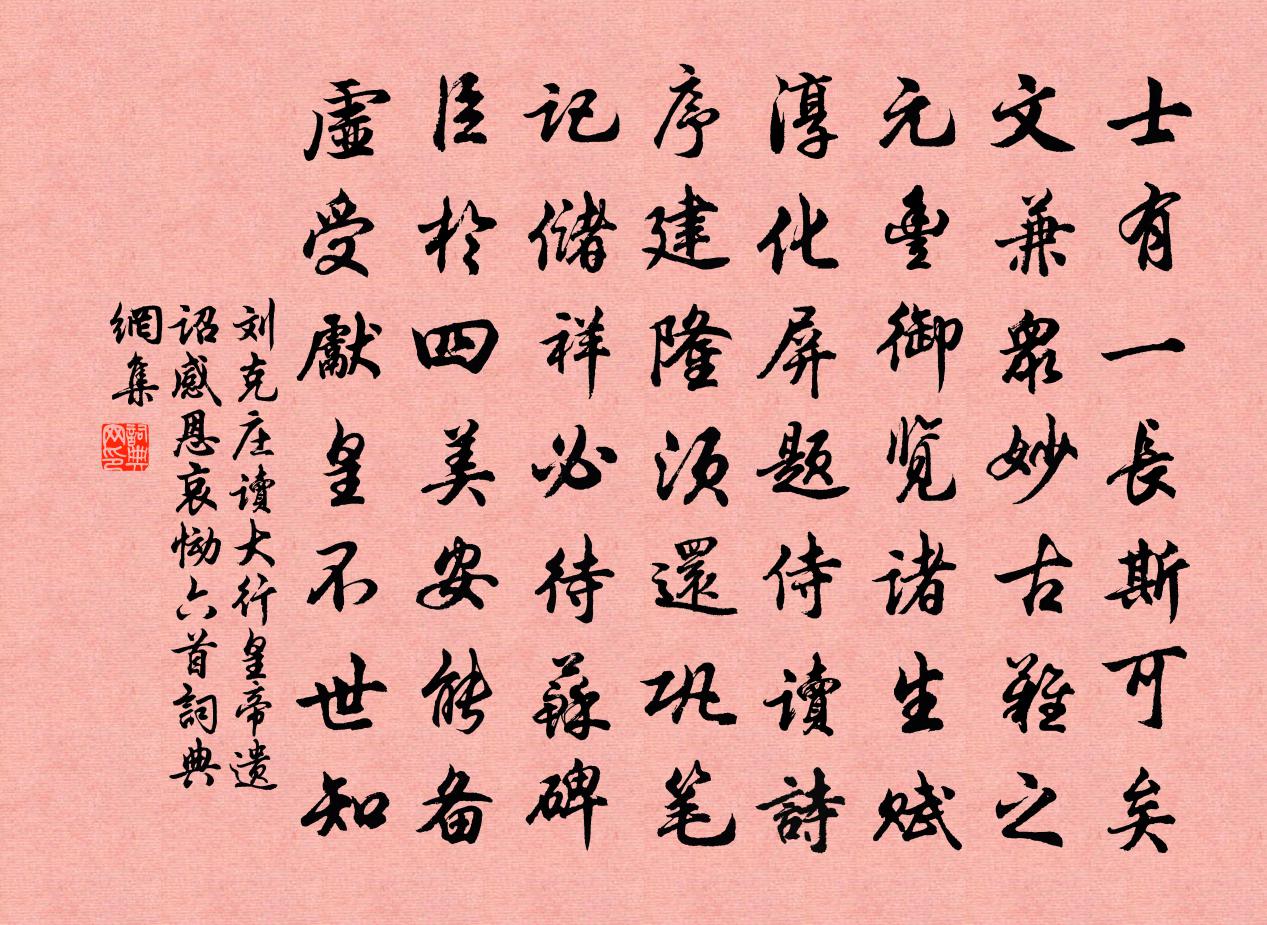 士有一長斯可矣
文兼眾妙古難之
元豐御覧諸生赋
淳化屏题侍讀詩
序建隆须還巩笔
记儲祥必待蘇碑
臣於四美安能备
虛受獻皇不世知
刘克庄讀大行皇帝遗
诏感恩哀恸六首詞典
網集